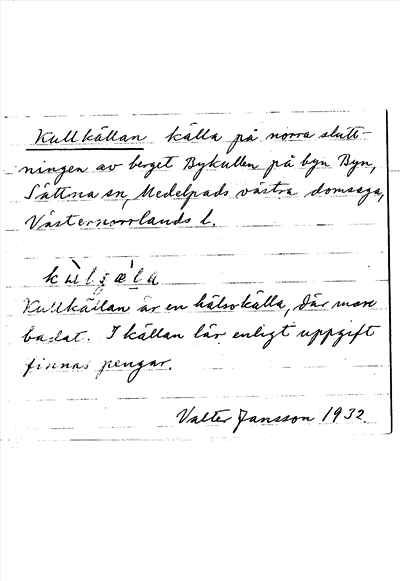 Kullkällan källa på norra slutt-
ningen av berget Bykullen på byn Byn,
Sättna sn, Medelpads västra domsaga,
Västernorrlands l.
Kullkällan är en hälsokälla, där man
badat. I källan lär enligt uppgift
finnas pengar.
Valter Jansson 1932.